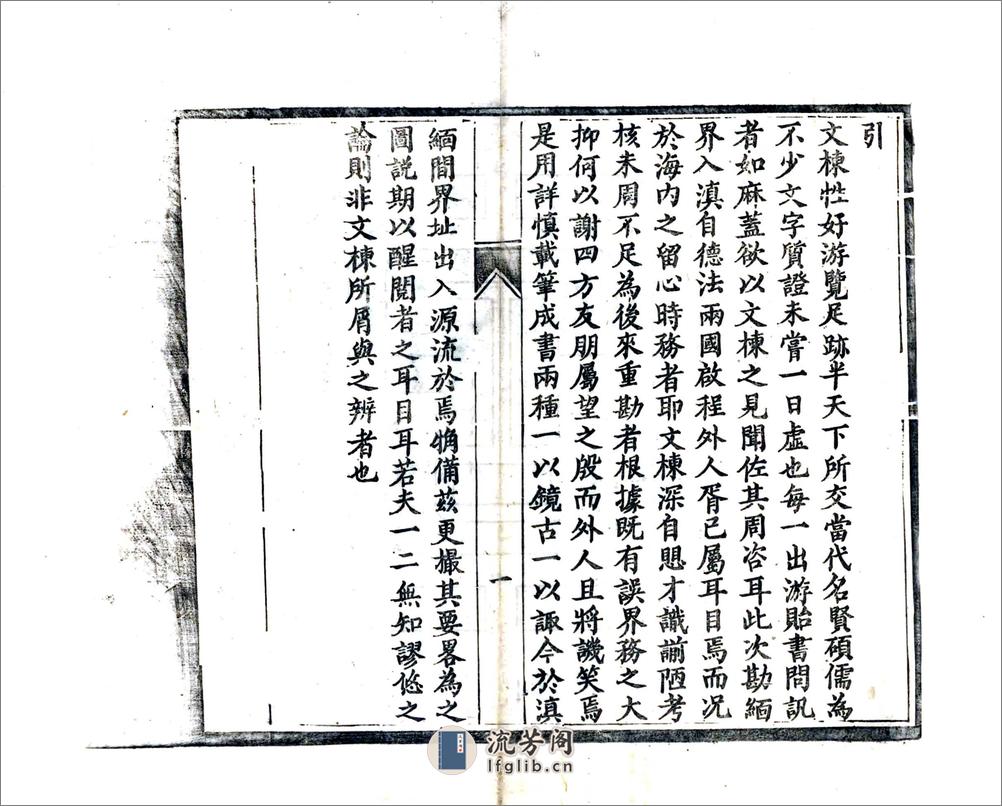 引
文棟性好游覽足跡半天下所交當代名賢碩儒為
不少文字質證未嘗一日虛也每一出游貽書問訊
者如麻蓋欲以文棟之見聞佐其周咨耳此次勘緬
界入滇自德法兩國啟程外人胥已屬耳目焉而況
於海內之留心時務者耶文棟深自愳才識謭陋考
核未周不足為後來重勘者根據既有誤界務之大
抑何以謝四方友朋屬望之殷而外人且將譏笑焉
是用詳慎載筆成書兩種一以鏡古一以諏今於滇
一
緬間界址出入源流於焉觕備茲更撮其要畧為之
圖説期以醒閱者之耳目耳若夫一二無知謬悠之
論則非文棟所屑與之辨者也
流芳阁
lfglib.cn